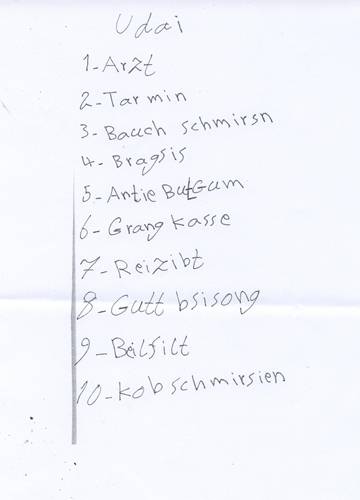 Udai
1-Arzt
2-Tarmin
3-Bauch schmirsn
4-Bragsis
5-Antie ButGum
6-Grang kasse
7-Reizibt
8-Gutt bsisong
9-Beilfilt
10-Kobschmirsien